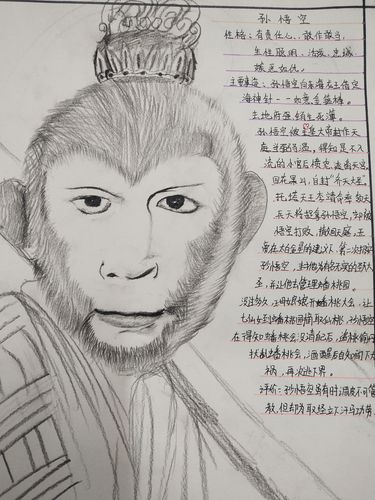 孙悟空
性格：有责任心、敢作敢当，
生性聪明、活泼、忠诚
嫉恶如仇。
主要事迹：孙悟空向东海龙王借定
海神针--如意金箍棒。
去地府强销生死簿。
孙悟空被玉皇大帝封作天
庭 得知是不入
流的小官后愤怒 走南天宫，
回花果山，自封“齐天大圣”。
托塔天王李靖奇率如天
兵天将捉拿孙悟空，却被
悟空打败，撤回天庭，玉
帝在太白金星的建议下，第二次招
孙悟空，封他为有名无实的齐天大
圣，并让他去管理蟠桃园。
没多久，王母娘娘开蟠桃大会，让
七仙女到蟠桃园摘取仙桃，孙悟空
在得知蟠桃会没请自己后，
扰乱蟠桃会，酒醒后自知闯下大
祸，再次逃下界。
评价：孙悟空虽有时顽皮不可管
教，但却为取经立下汗马功劳。